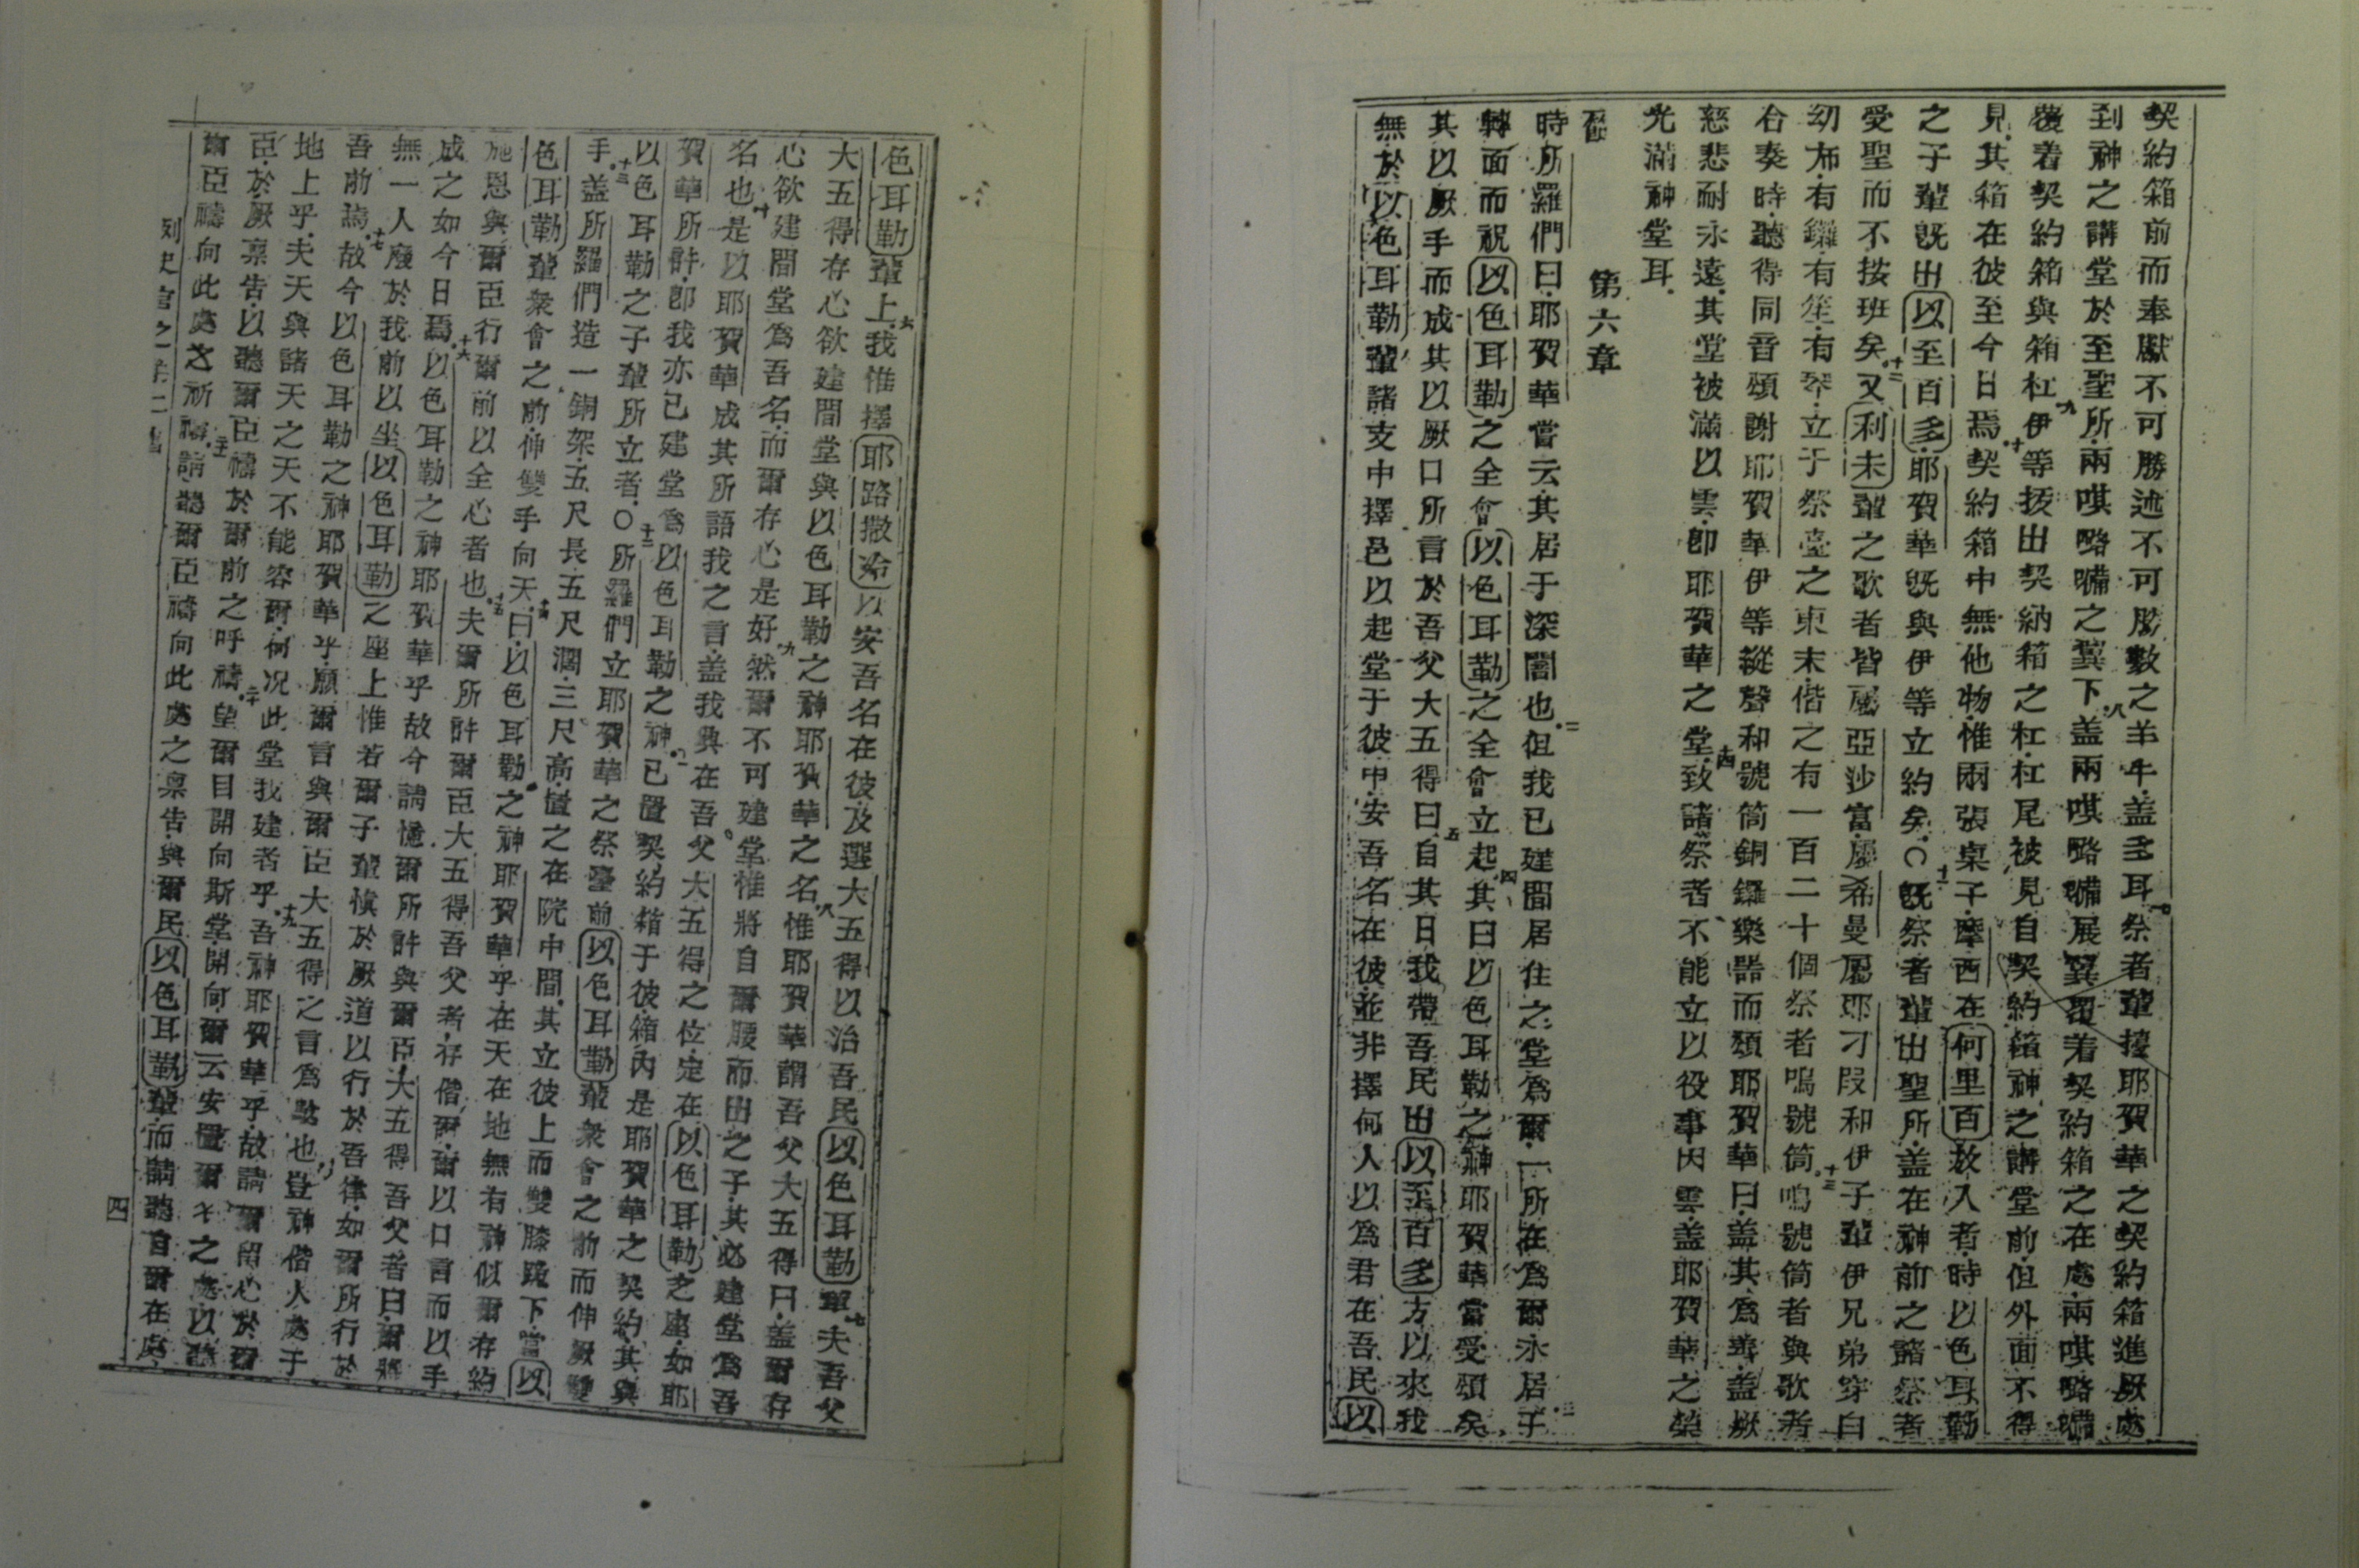 契約箱前而奉獻不可勝述不可勝數之羊牛盖多耳祭者輩擡耶賀華之契約箱進厥處
到神之講堂於至聖所兩唭略嘣之翼下八盖兩唭略嘣展翼覆着契約箱之在處兩唭略嘣
覆着契約箱與箱杠九伊等拔出契約箱之杠杠尾被見自契約箱神之講堂前但外面不得
見其箱在彼至今日焉十契約箱中無他物惟兩張桌子摩西在何里百放入者時以色耳勒
之子輩旣出以至百多耶賀華旣與伊等立約矣○十一旣祭者輩出聖所盖在神前之諸祭者
受聖而不按班矣十二又利未輩之歌者皆屬亞沙富屬希曼屬耶刁段和伊子輩伊兄弟穿白
幼布有鑼有笙有琴立于祭臺之東末偕之有一百二十個祭者鳴號筒十三鳴號筒者與歌者
合奏時聽得同音頌謝耶賀華伊等縱聲和號筒銅鑼樂器而頌耶賀華曰盖其爲善盖厥
慈悲耐永遠其堂被滿以雲卽耶賀華之堂十四致諸祭者不能立以役事因雲盖耶賀華之榮
光滿神堂耳
第六章
時所羅們曰耶賀華嘗云其居于深闇也二但我已建間居住之堂爲爾一所在爲爾永居于三
轉面而祝以色耳勒之全會以色耳勒之全會立起四其曰以色耳勒之神耶賀華當受頌矣
其以厥手而成其以厥口所言於吾父大五得曰五自其日我帶吾民出以至百多方以來我
無於以色耳勒輩諸支中擇邑以起堂于彼中安吾名在彼並非擇何人以爲君在吾民以
色耳勒輩上六我惟擇耶路撒冷以安吾名在彼及選大五得以治吾民以色耳勒輩七夫吾父
大五得存心欲建間堂與以色耳勒之神耶賀華之名八惟耶賀華謂吾父大五得曰盖爾存
心欲建間堂爲吾名而爾存心是好九然爾不可建堂惟將自爾腰而出之子其必建堂爲吾
名也十是以耶賀華成其所語我之言盖我興在吾父大五得之位定在以色耳勒之座如耶
賀華所許卽我亦已建堂爲以色耳勒之神十一已置契約箱于彼箱內是耶賀華之契約其與
以色耳勒之子輩所立者○十二所羅們立耶賀華之祭臺前以色耳勒輩衆會之前而伸厥雙
手十三盖所羅們造一銅架五尺長五尺濶三尺高置之在院中間其立彼上而雙膝跪下當以
色耳勒輩衆會之前伸雙手向天十四曰以色耳勒之神耶賀華乎在天在地無有神似爾存約
施恩與爾臣行爾前以全心者也十五夫爾所許爾臣大五得吾父者存偕爾爾以口言而以手
成之如今日焉十六以色耳勒之神耶賀華乎故今請憶爾所許與爾臣大五得吾父者曰爾將
無一人廢於我前以坐以色耳勒之座上惟若爾子輩愼於厥道以行於吾律如爾所行於
吾前焉十七故今以色耳勒之神耶賀華乎願爾言與爾臣大五得之言爲騐也豈神偕人處于
地上乎夫天與諸天之天不能容爾何况此堂我建者乎十九吾神耶賀華乎故請爾留心於爾
臣於厥禀告以聽爾臣禱於爾前之呼禱二十望爾目開向斯堂開向爾云安置爾名之處以聽
爾臣禱向此處之祈禱請聽爾臣禱向此處之禀告與爾民以色耳勒輩而請聽自爾在處
四